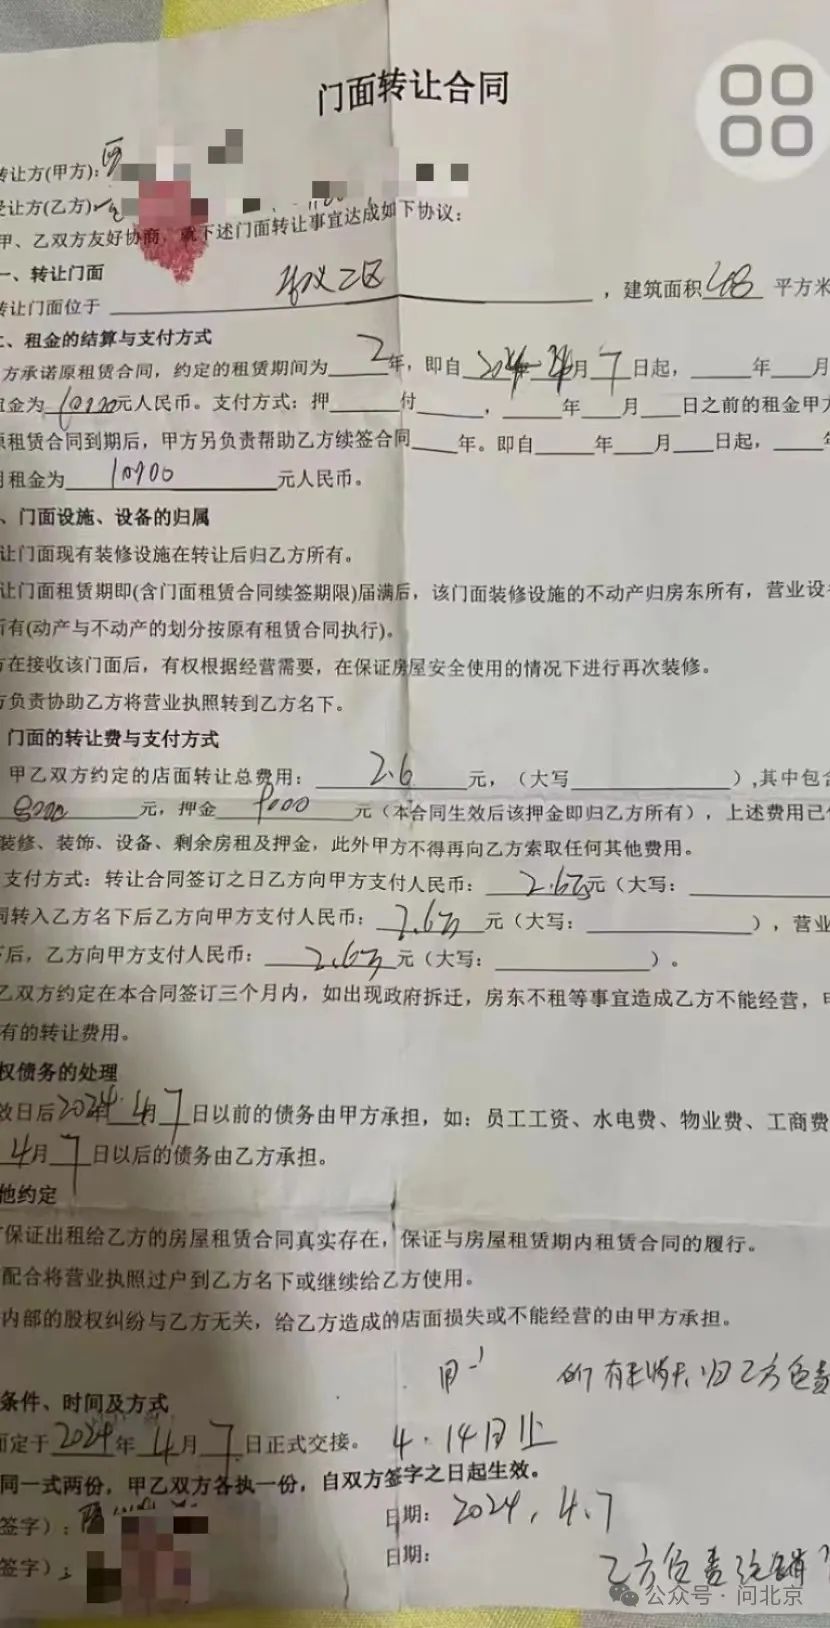 门面转让合同
转让方(甲方):
受让方(乙方):
甲、乙双方友好协商,就下述门面转让事宜达成如下协议:
一、转让门面
转让门面位于 二区 ,建筑面积 68 平方米
二、租金的结算与支付方式
方承诺原租赁合同,约定的租赁期间为 2 年,即自 月 7 日起, 年 月
租金为 元人民币。支付方式:押 付 , 年 月 日之前的租金甲方
原租赁合同到期后,甲方另负责帮助乙方续签合同 年。即自 年 月 日起,
月租金为 元人民币。
、门面设施、设备的归属
让门面现有装修设施在转让后归乙方所有。
让门面租赁期即(含门面租赁合同续签期限)届满后,该门面装修设施的不动产归房东所有,营业设
所有(动产与不动产的划分按原有租赁合同执行)。
方在接收该门面后,有权根据经营需要,在保证房屋安全使用的情况下进行再次装修。
方负责协助乙方将营业执照转到乙方名下。
门面的转让费与支付方式
甲乙双方约定的店面转让总费用: 2.6 元,(大写 ),其中包含
8000 元,押金 元(本合同生效后该押金即归乙方所有),上述费用已
装修、装饰、设备、剩余房租及押金,此外甲方不得再向乙方索取任何其他费用。
支付方式:转让合同签订之日乙方向甲方支付人民币: 2.6万 元(大写:
同转入乙方名下后乙方向甲方支付人民币: 2.6万 元(大写: ),营业
下后,乙方向甲方支付人民币: 2.6万 元(大写: )。
乙双方约定在本合同签订三个月内,如出现政府拆迁,房东不租等事宜造成乙方不能经营,甲
有的转让费用。
权债务的处理
效日后 2024年 4月 7 日以前的债务由甲方承担,如:员工工资、水电费、物业费、工商费
4月 7 日以后的债务由乙方承担。
他约定
保证出租给乙方的房屋租赁合同真实存在,保证与房屋租赁期内租赁合同的履行。
配合将营业执照过户到乙方名下或继续给乙方使用。
内部的股权纠纷与乙方无关,给乙方造成的店面损失或不能经营的由甲方承担。
所有 归乙方负责
条件、时间及方式
面定于 2024 年 4 月 7 日正式交接。 4.14日止
同一式两份,甲乙双方各执一份,自双方签字之日起生效。
签字): 日期: 2024.4.7
签字): 日期:
乙方负责
公众号·问北京